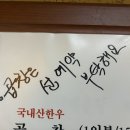 곱창은 선예약 부탁해요
국내산한우
곱 창 (1인분/1